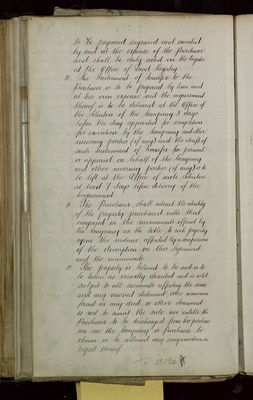 to be prepared engrossed and executed
by and at the expense of the Purchaser
and shall be duly and on the
at the Office of Land Registry
10. The Instrument of transfer to the
Purchaser is to be prepared by him and
at his own expense and the engrossment
thereof is to be delivered at the Office of
the Solicitor of the Company 3 days
before the day appointed for completion
for execution by the Company and other
necessary parties (if any) and the draft of
such instrument of transfer for perusal
or approval on behalf of the Company
and other necessary parties (if any) is to
be left at the Office of such Solicitor
at least 7 days before delivery of the
Engrossment
11. The Purchaser shall admit the identity
of the property purchased with that
comprised in the muniments offered by
the Company as the title to such property
upon the evidence afforded by a comparison
of the description in this Agreement
and the muniments
12. The property is believed to be and is to
be taken as correctly described and is sold
subject to all easements affecting the same
and any incorrect statement
found in any deed or other document
is not to annul the sale nor entitle the
Purchaser to be discharged from his purchase
nor are the Company or Purchaser to
claim or be allowed any compensation in
respect thereof